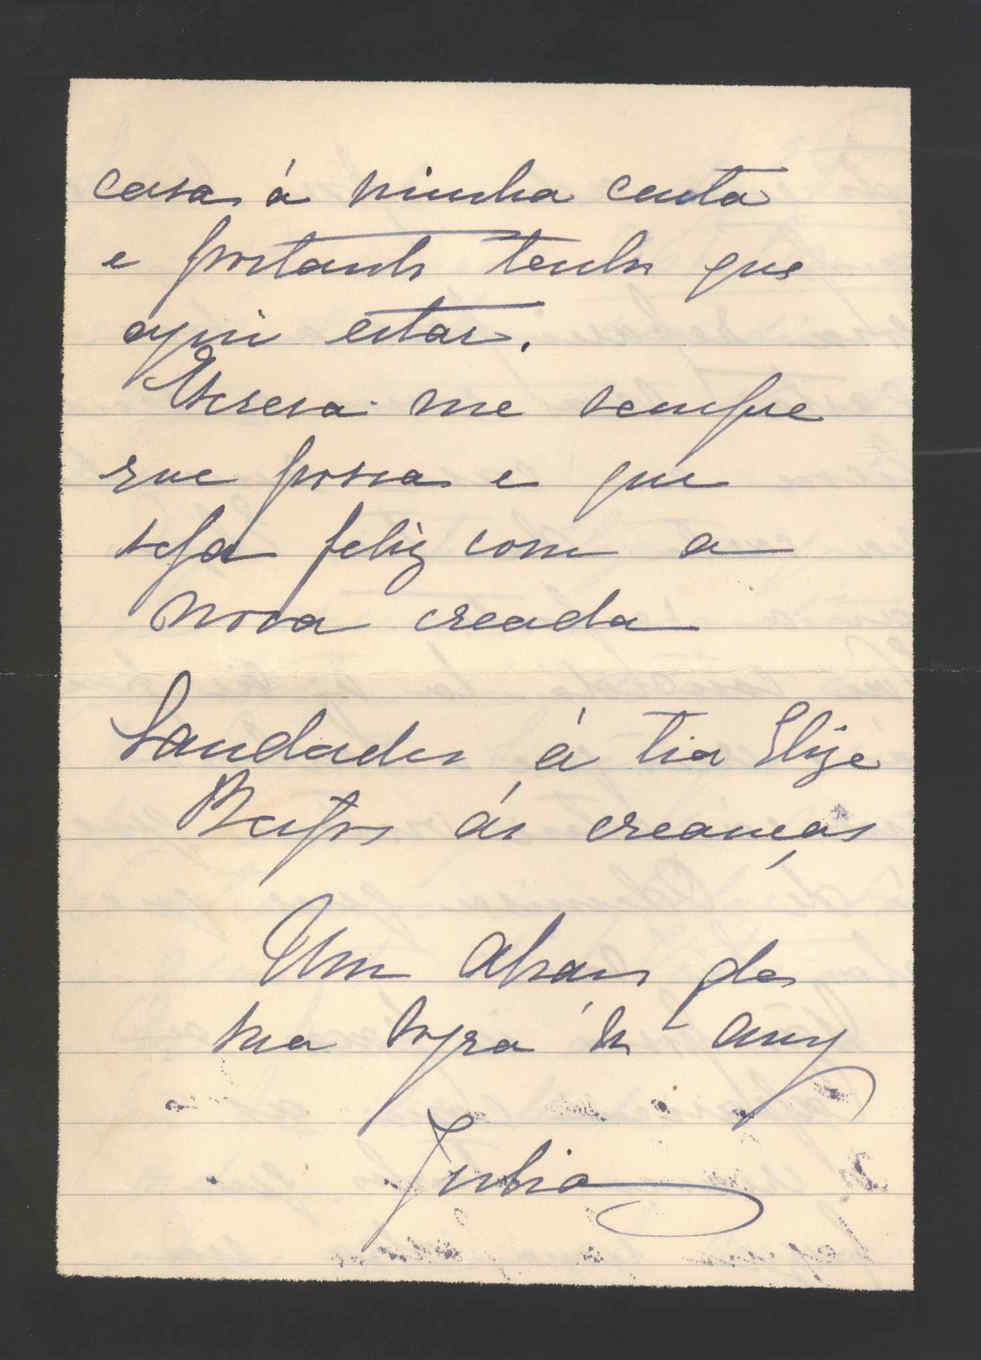 casa á minha conta
e portanto tenho que
aqui estar.
Escreva me sempre
que possa e que
seja feliz com a
nova creada
Saudades á tia Elize
Beijos ás creanças
Um abraço da
sua sogra
Julia